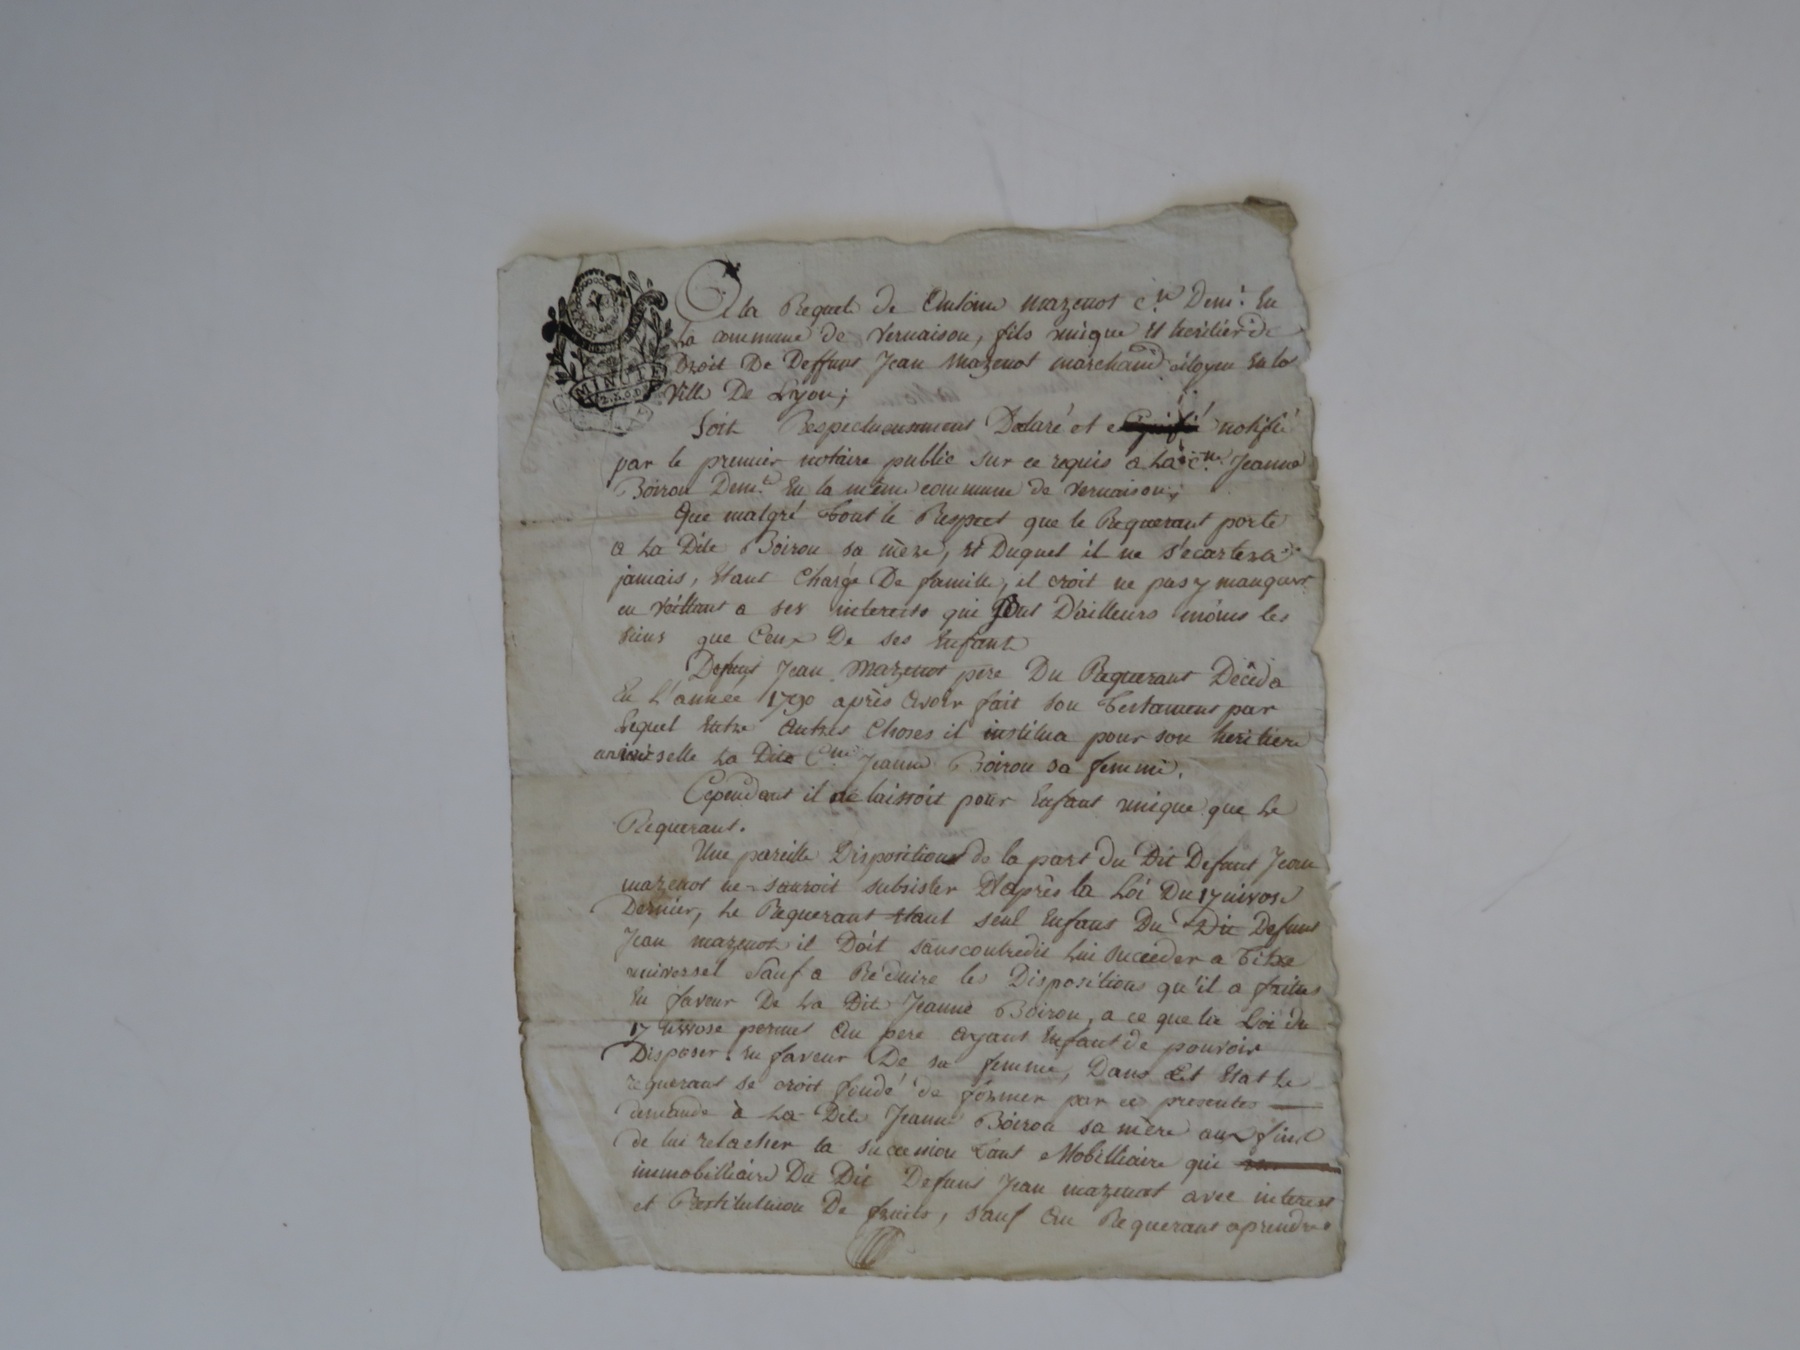 MINUTE
A la Requete de Antoine mazenot c.en Dem.t En
La commune de Vernaison, fils unique Et heritier de
Droit De Deffunt Jean Mazenot marchand citoyen En la
Ville De Lyon;
Soit Respectueusement Declaré et notifié
par le premier notaire public sur ce requis a La c.ne Jeanne
Boiron Dem.te En la même commune de Vernaison;
Que malgré tout le Respect que le Requerant porte
a La Dite Boiron sa mère, Et Duquel il ne s'ecartera
jamais, Etant Chargé De famille, il croit ne pas y manquer
en veillant a ses interets qui sont D'ailleurs moins les
siens que Ceux De ses Enfants
Defunt Jean Mazenot pere Du Requerant Décéda
En L'année 1790 après avoir fait son Testament par
lequel Entre Autres Choses il institua pour son heritiere
universelle La Dite C.ne Jeanne Boiron sa femme.
Cependant il ne laissoit pour Enfant unique que Le
Requerant.
Une pareille Disposition de la part du Dit Defunt Jean
mazenot ne sauroit subsister D'après la Loi Du 17 nivose
Dernier, Le Requerant Etant seul Enfant Du Dit Defunt
Jean mazenot il Doit sans contredit Lui succeder a Titre
universel Sauf a Reduire les Dispositions qu'il a faites
En faveur De La Dite Jeanne Boiron, a ce que la Loi du
17 nivose permet Au pere ayant Enfant de pouvoir
Disposer En faveur De sa femme, Dans cet Etat le
requerant se croit fondé de former par ce presentes
demande à La Dite Jeanne Boiron sa mère aux fins
de lui relacher la succession tant Mobilliaire que
immobilliaire Du Dit Defunt Jean mazenot avec interets
et Restitution De fruits, sauf Au Requerant a prendre